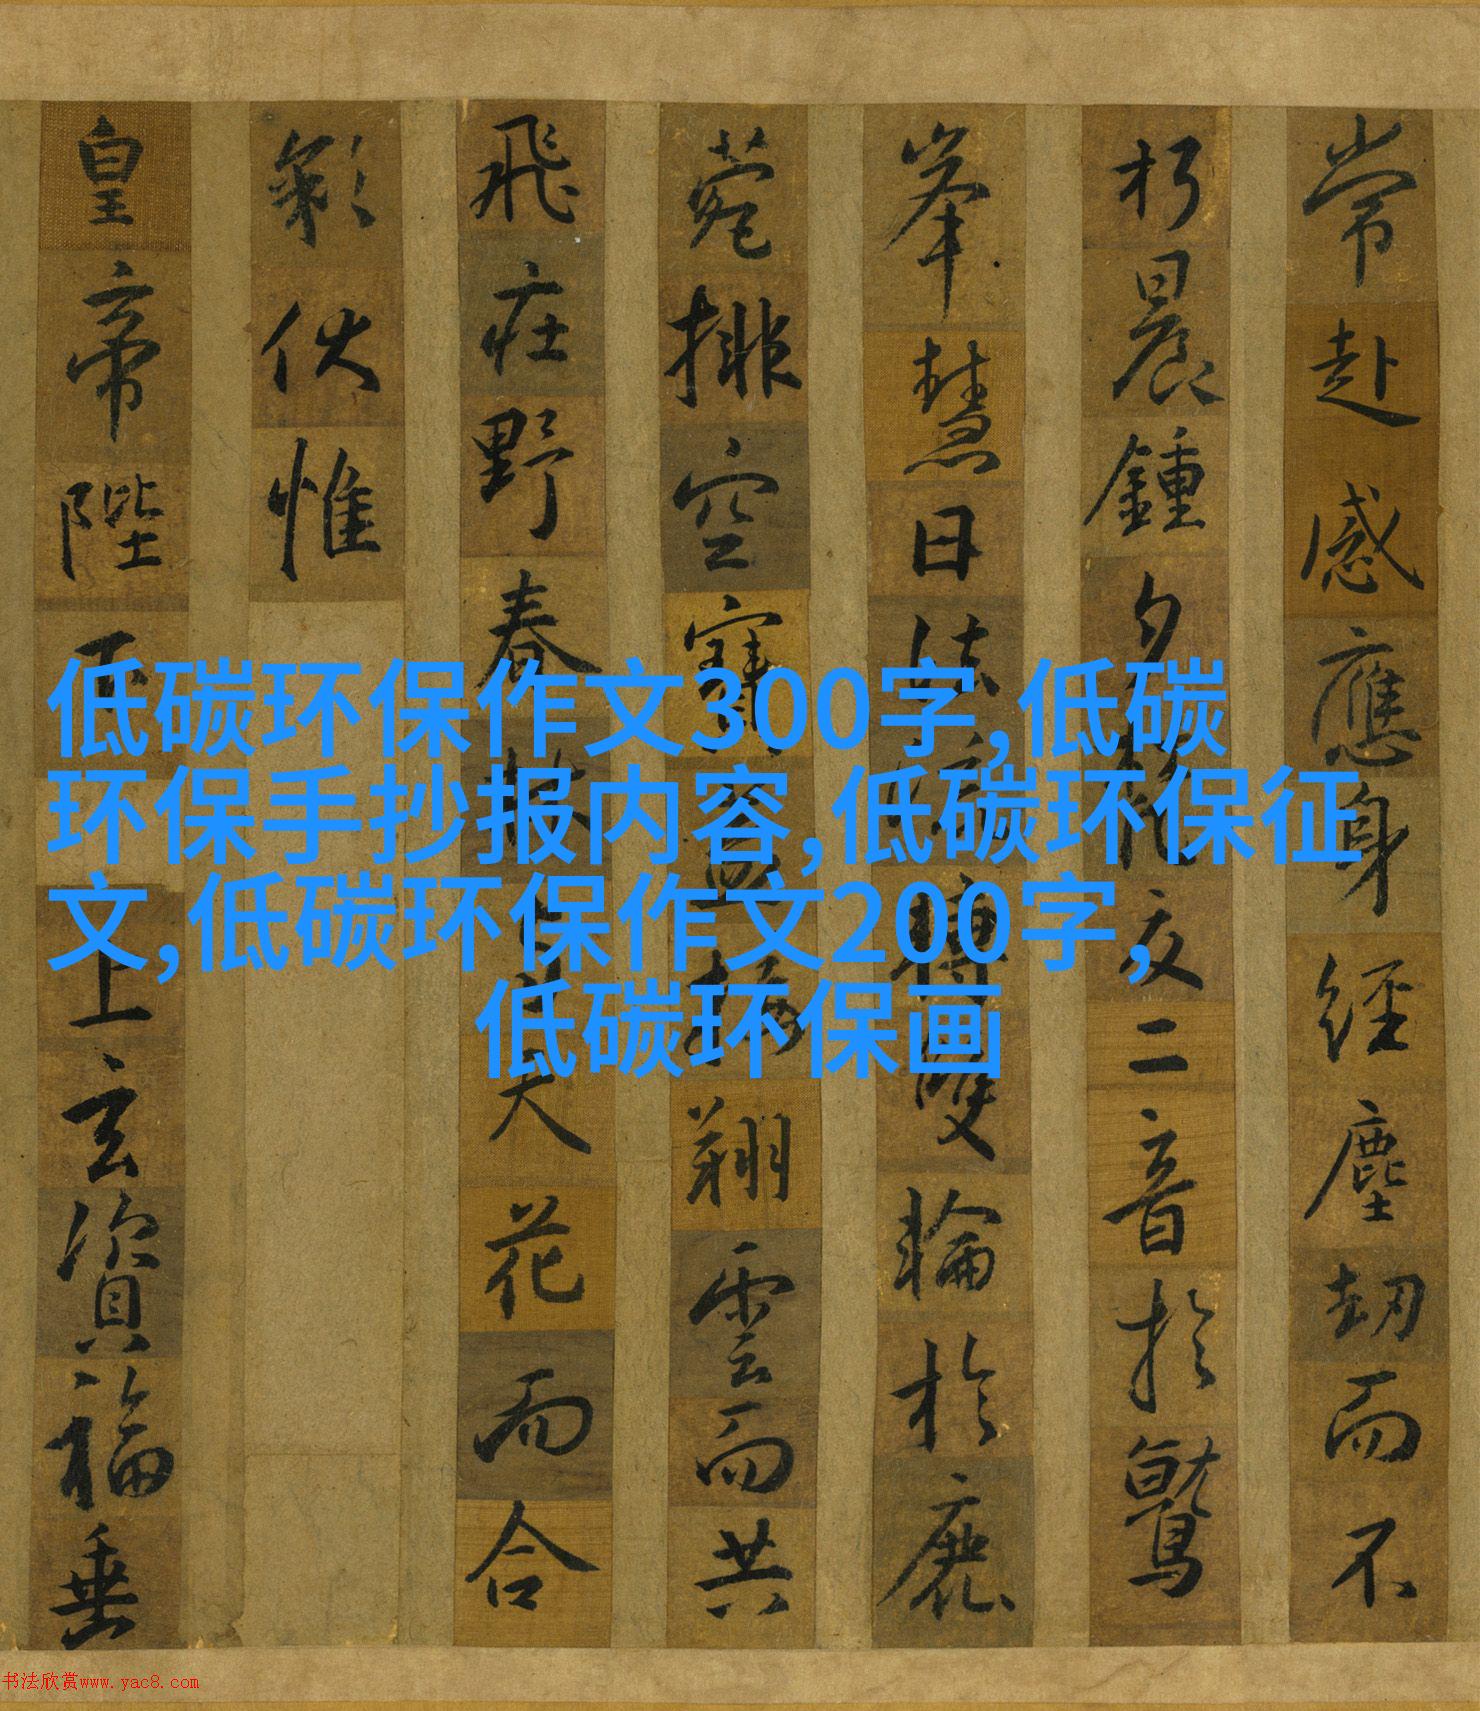 常赴感應身經塵劫而不
朽晨鍾夕梵交二音於鷲
峯慧日法流轉雙輪於鹿
菀排空寶蓋接翔雲而共
飛莊野春林與天花而合
彩伏惟
皇帝陛下上玄資福垂
低碳环保作文300字,低碳
环保手抄报内容,低碳环保征
文,低碳环保作文200字,
低碳环保画
书法欣赏www.yac8.com